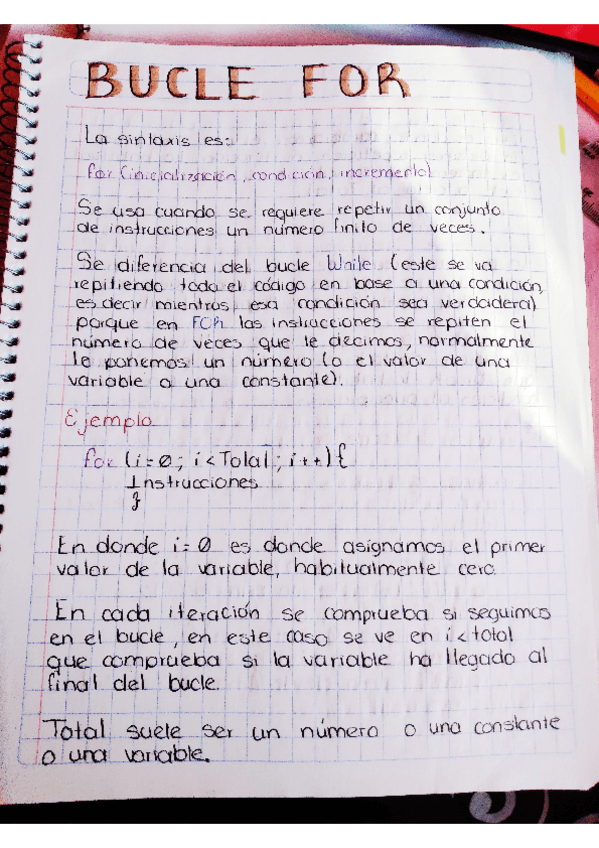 BUCLE FOR
La sintaxis es:
for (inicialización, condición, incremento)
Se usa cuando se requiere repetir un conjunto
de instrucciones un número finito de veces.
Se diferencia del bucle While (este se va
repitiendo todo el código en base a una condición,
es decir mientras esa condición sea verdadera)
porque en FOR las instrucciones se repiten el
número de veces que le decimos, normalmente
le ponemos un número (o el valor de una
variable o una constante).
Ejemplo
for (i=0; i<Total; i++){
Instrucciones
}
En donde i=0 es donde asignamos el primer
valor de la variable, habitualmente cero.
En cada iteración se comprueba si seguimos
en el bucle, en este caso se ve en i<total
que comprueba si la variable ha llegado al
final del bucle.
Total suele ser un número o una constante
o una variable.